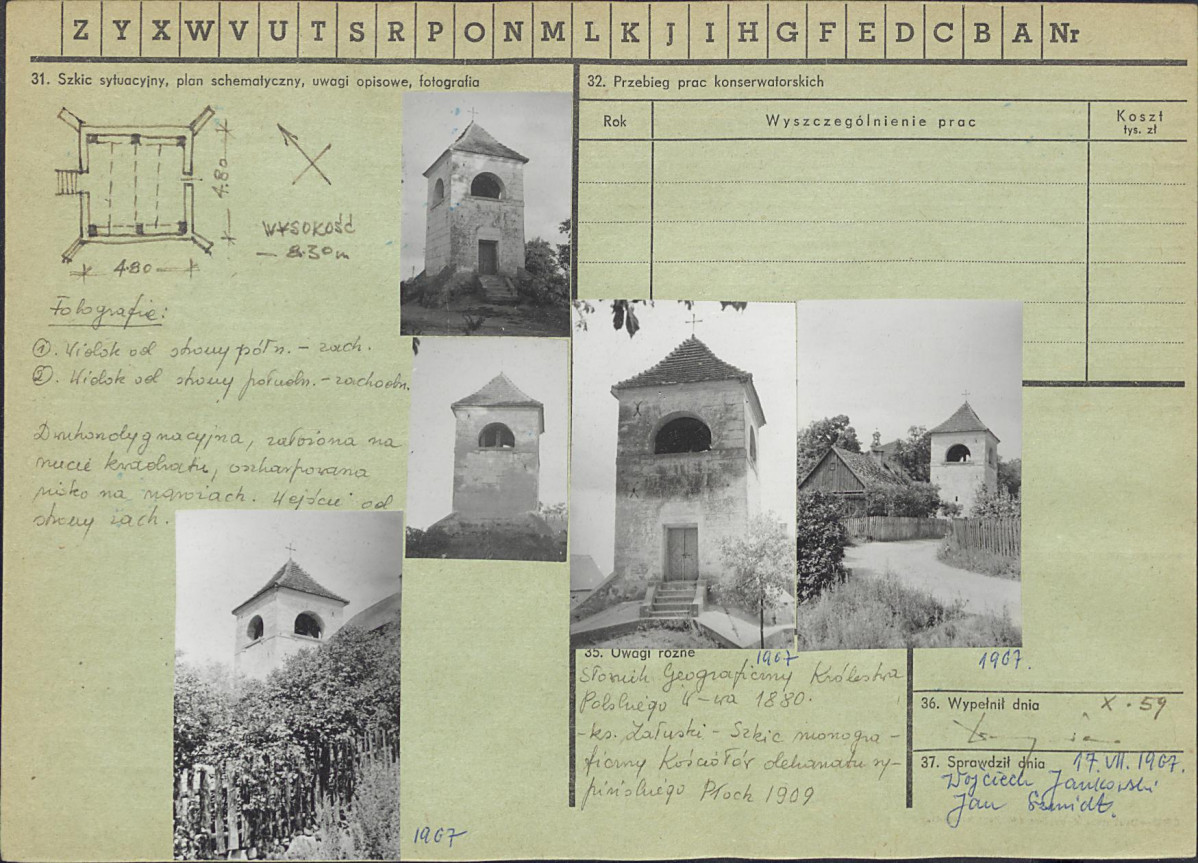 Z Y X W V U T S R P O N M L K J I H G F E D C B A Nr
31. Szkic sytuacyjny, plan schematyczny, uwagi opisowe, fotografia
4.80
WYSOKOŚĆ
— 8.30 m
4.80
Fotografie:
①. Widok od strony półn. – zach.
②. Widok od strony połudn. – zachodn.
Dwukondygnacyjna, założona na
rzucie kwadratu, oszkarpowana
nisko na narożach. Wejście od
strony zach.
1967
32. Przebieg prac konserwatorskich
Rok Wyszczególnienie prac Koszt
tys. zł
35. Uwagi różne
1967
Słownik Geograficzny Królestwa
Polskiego W-wa 1880.
- ks. Załuski – Szkic monogra-
ficzny Kościółów dekanatu ry-
pińskiego Płock 1909
1967.
36. Wypełnił dnia X. 59
37. Sprawdził dnia 17. VII. 1967.
Wojciech Jankowski
Jan Szmidt.